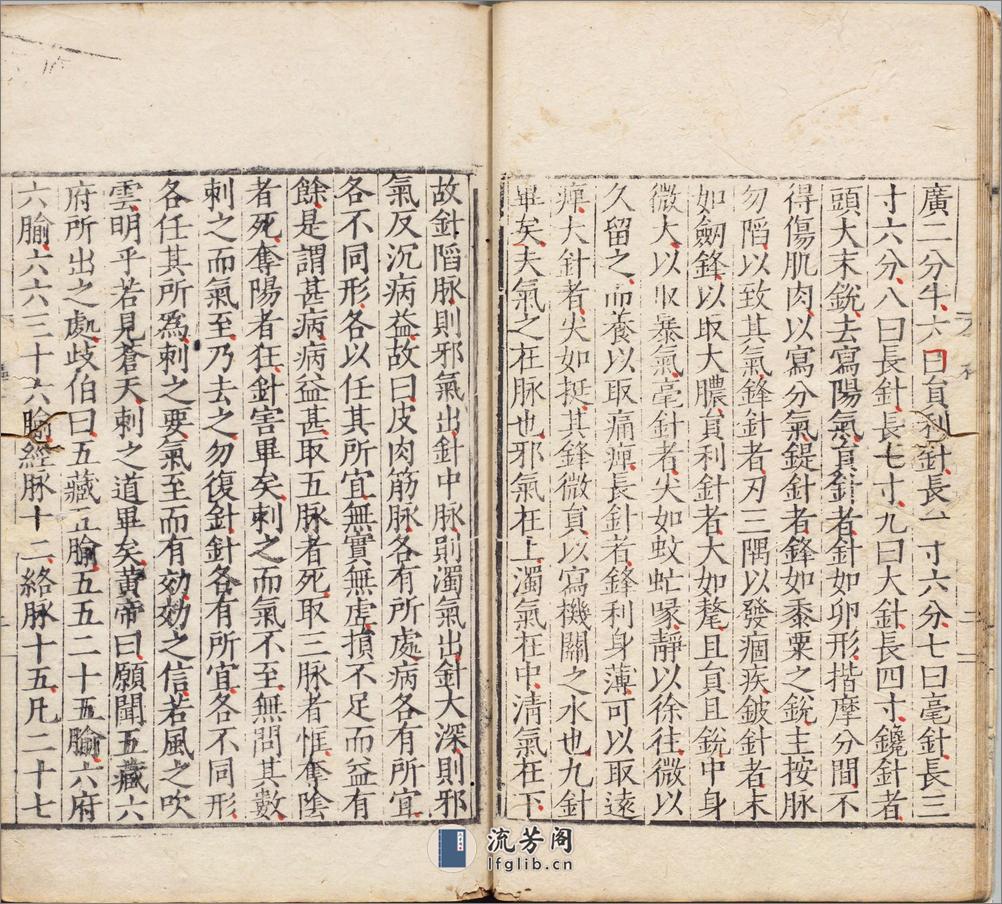 廣二分半六曰員利針長一寸六分七曰毫針長三
寸六分八曰長針長七寸九曰大針長四寸鑱針者
頭大末銳去寫陽氣員針者針如卵形揩摩分間不
得傷肌肉以寫分氣鍉針者鋒如黍粟之銳主按脉
勿陷以致其氣鋒針者刃三隅以發痼疾鈹針者末
如劒鋒以取大膿員利針者大如氂且員且銳中身
微大以取暴氣毫針者尖如蚊䖟喙靜以徐往微以
久留之而養以取痛痺長針者鋒利身薄可以取遠
痺大針者尖如挺其鋒微員以寫機關之水也九針
畢矣夫氣之在脉也邪氣在上濁氣在中清氣在下
故針陷脉則邪氣出針中脉則濁氣出針大深則邪
氣反沉病益故曰皮肉筋脉各有所處病各有所宜
各不同形各以任其所宜無實無虛損不足而益有
餘是謂甚病病益甚取五脉者死取三脉者恇奪陰
者死奪陽者狂針害畢矣刺之而氣不至無問其數
刺之而氣至乃去之勿復針針各有所宜各不同形
各任其所爲刺之要氣至而有効効之信若風之吹
雲明乎若見蒼天刺之道畢矣黃帝曰願聞五藏六
府所出之處歧伯曰五藏五腧五五二十五腧六府
六腧六六三十六腧經脉十二絡脉十五凡二十七
流芳阁
lfglib.cn